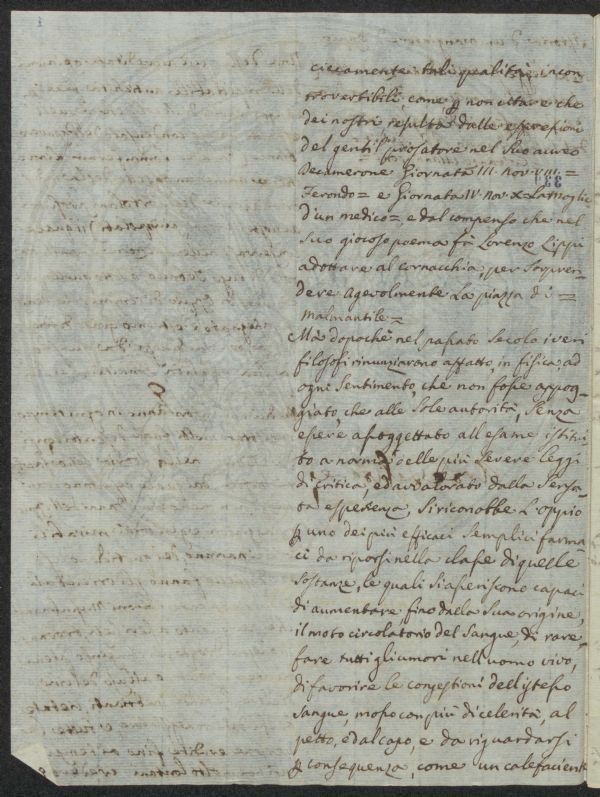 ciecamente tali qualità incon
trovertibili, come p non citare che
dei nostri resulta dalle espressioni
del gentil prosatore nel suo aureo
Decamerone Giornata III. Nov. VIII. =
Ferondo = e Giornata IV. Nov. X. La Moglie
d'un medico =, e dal compenso che nel
suo giocoso poema fà Lorenzo Lippi
adottare al cornacchia, per sorpren
dere agevolmente la piazza di =
Malmantile =
Mà dopoche nel passato secolo i veri
filosofi rinunziarono affatto, in fisica, ad
ogni sentimento, che non fosse appog-
giato, che alle sole autorità, senza
essere assoggettato all'esame istitui
to a norma delle più severe leggi
di critica, ed avvalorato dalla
ta esperienza, si riconobbe l'oppio
p uno dei più efficaci semplici farma
ci da riporsi nella classe di quelle
sostanze, le quali si asseriscono capaci
di aumentare, fino dalla sua origine,
il moto circolatorio del sangue, di rare
fare tutti gli umori nell'uomo vivo,
di favorire le congestioni dell'istesso
sangue, mosso con più di celerità, al
petto, e dal capo, e da riguardarsi
p conseguenza, come un calefaciente